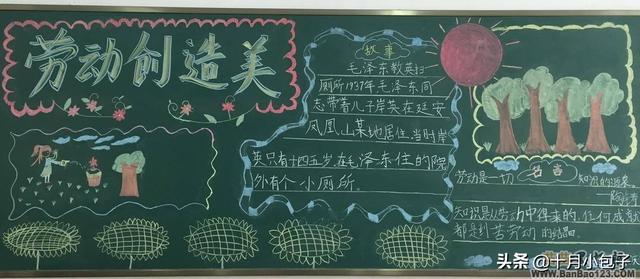 劳动创造美
故事
毛泽东教英扫
厕所1937年毛泽东同
志带着儿子岸英在延安
凤凰山某地居住,当时岸
英只有十四五岁,在毛泽东住的院
外有个小厕所。
名言
劳动是一切知识的源泉
知识是从劳动中得来的,任何成就
都是刻苦劳动的结晶
www.BanBao123.com
头条 @十月小包子